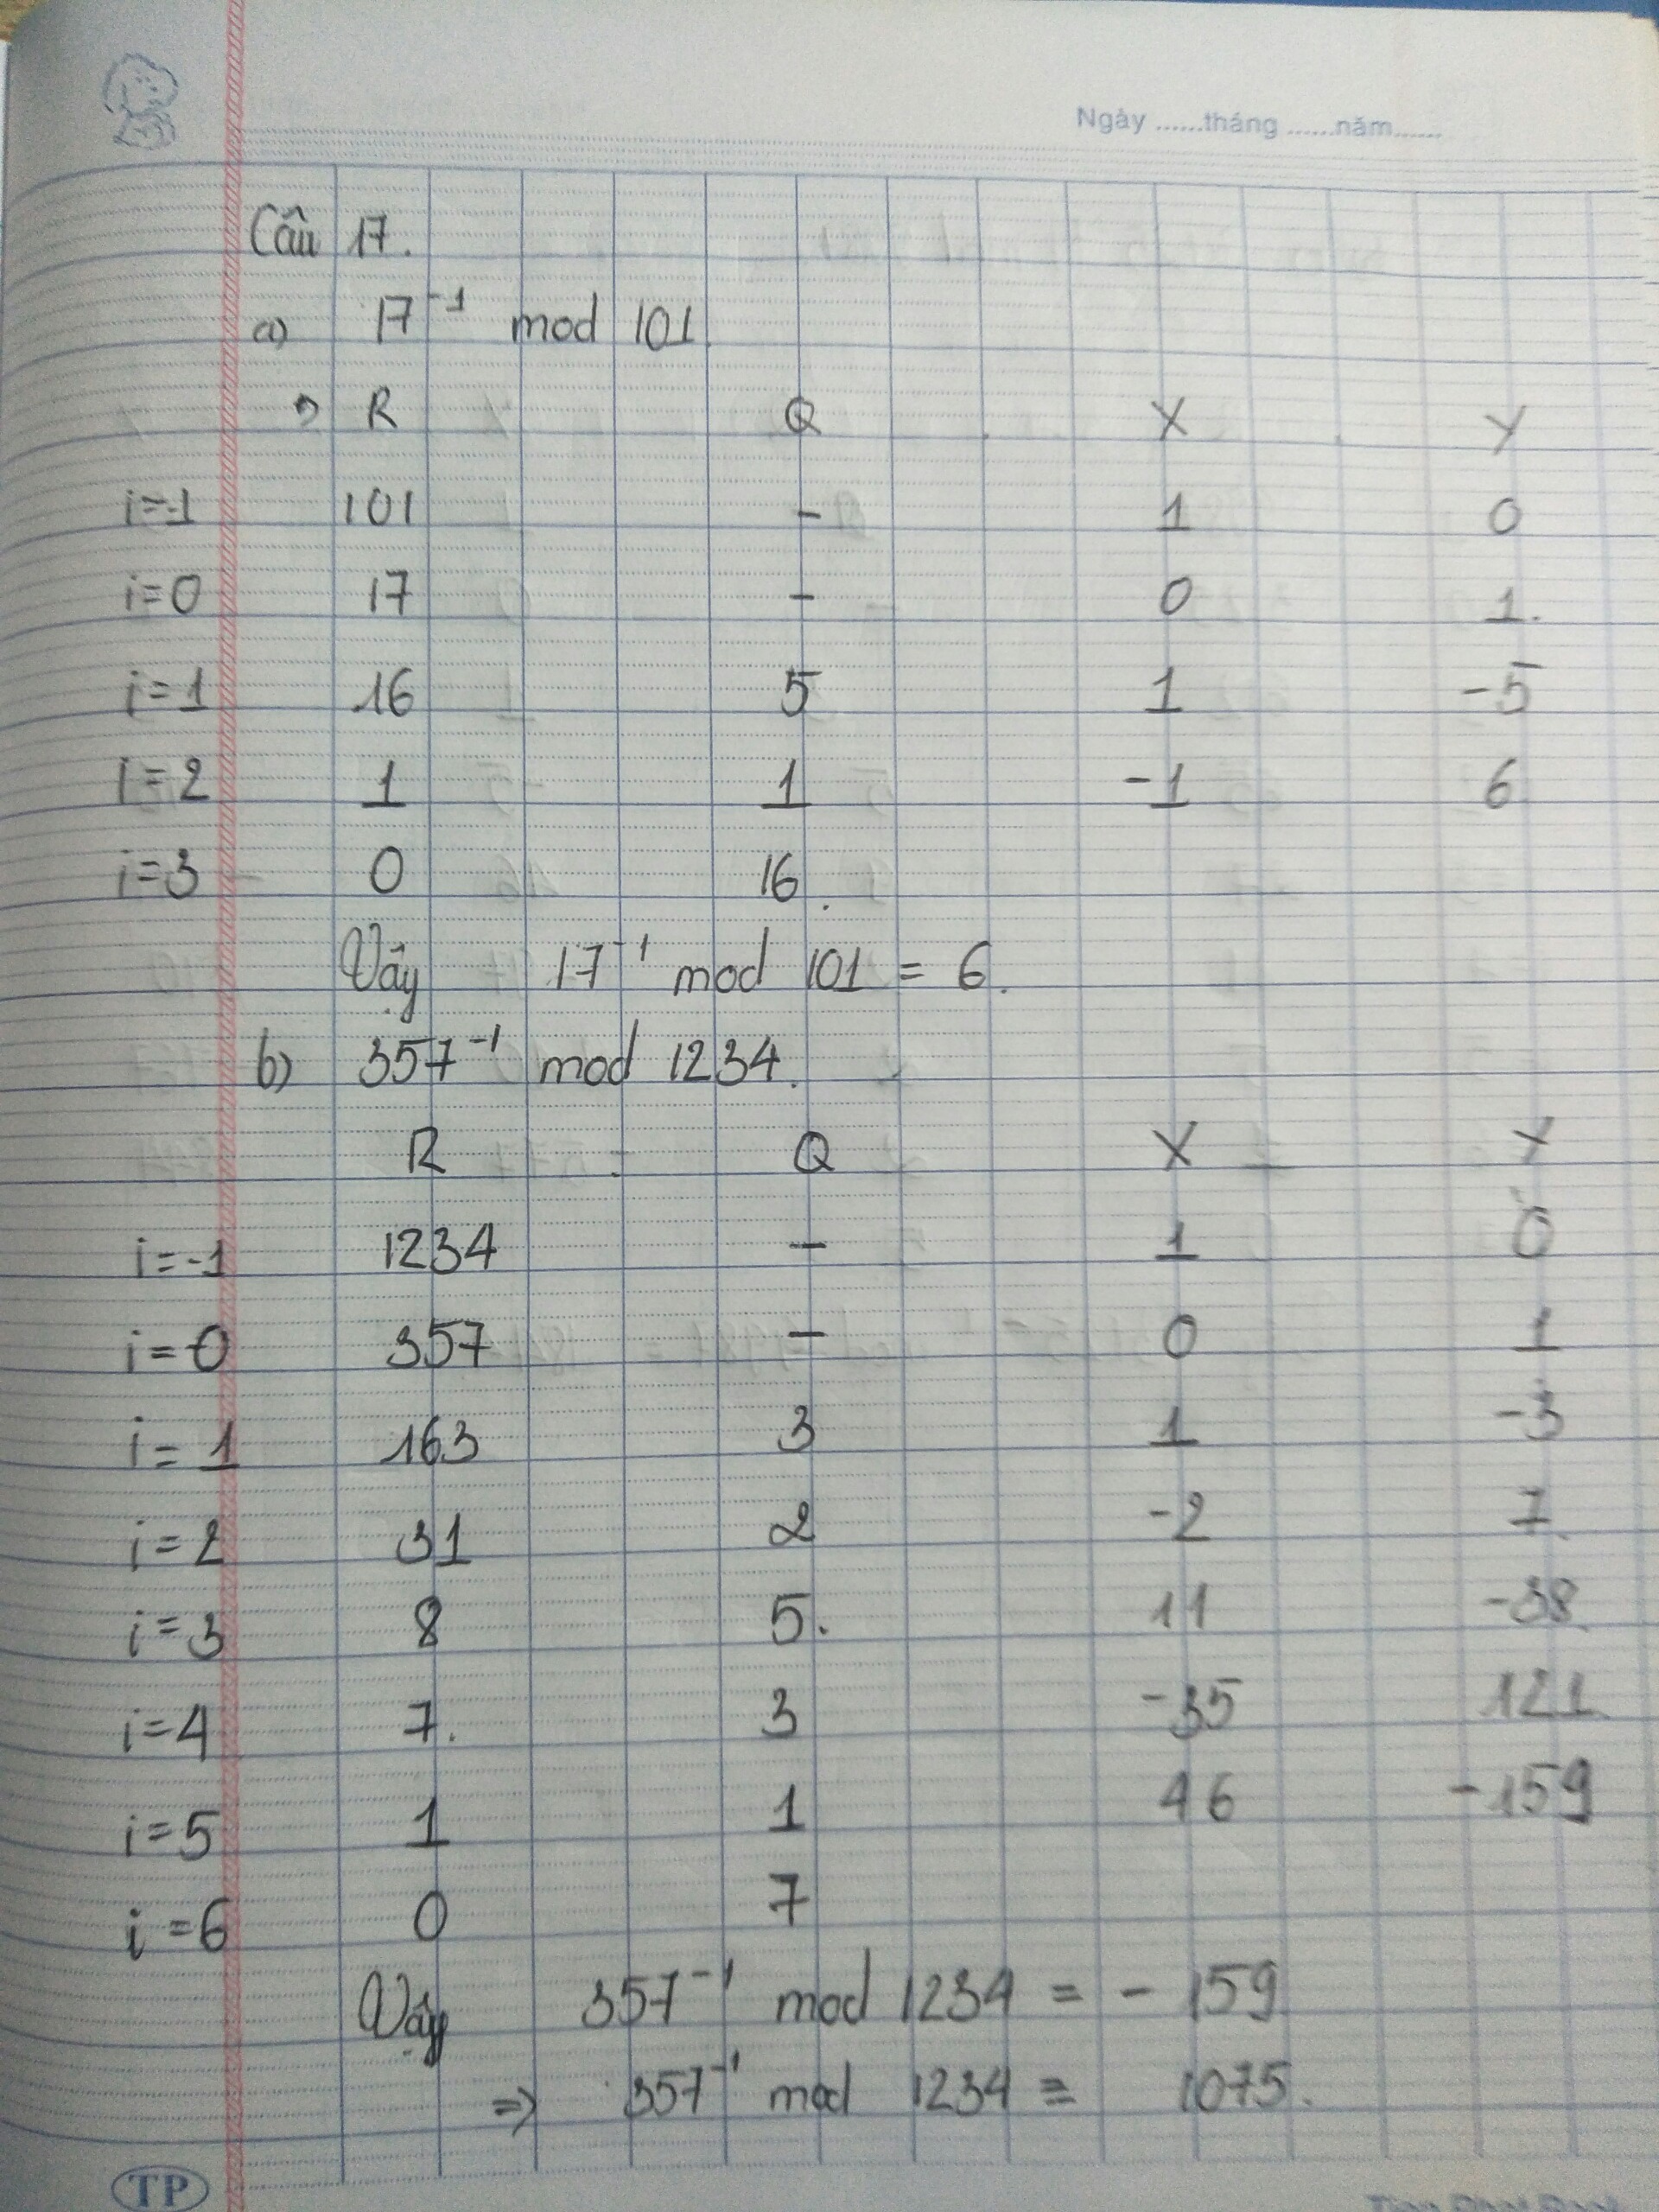 Ngày ......tháng ......năm......
Câu 17.
a) 17⁻¹ mod 101
R Q X Y
i=-1 101 - 1 0
i=0 17 - 0 1.
i=1 16 5 1 -5
i=2 1 1 -1 6
i=3 0 16.
Vậy 17⁻¹ mod 101 = 6.
b) 357⁻¹ mod 1234.
R Q X Y
i=-1 1234 - 1 0
i=0 357 - 0 1
i=1 163 3 1 -3
i=2 31 2 -2 7
i=3 8 5. 11 -38
i=4 7. 3 -35 121
i=5 1 1 46 -159
i=6 0 7
Vậy 357⁻¹ mod 1234 = - 159
=> 357⁻¹ mod 1234 = 1075.
TP